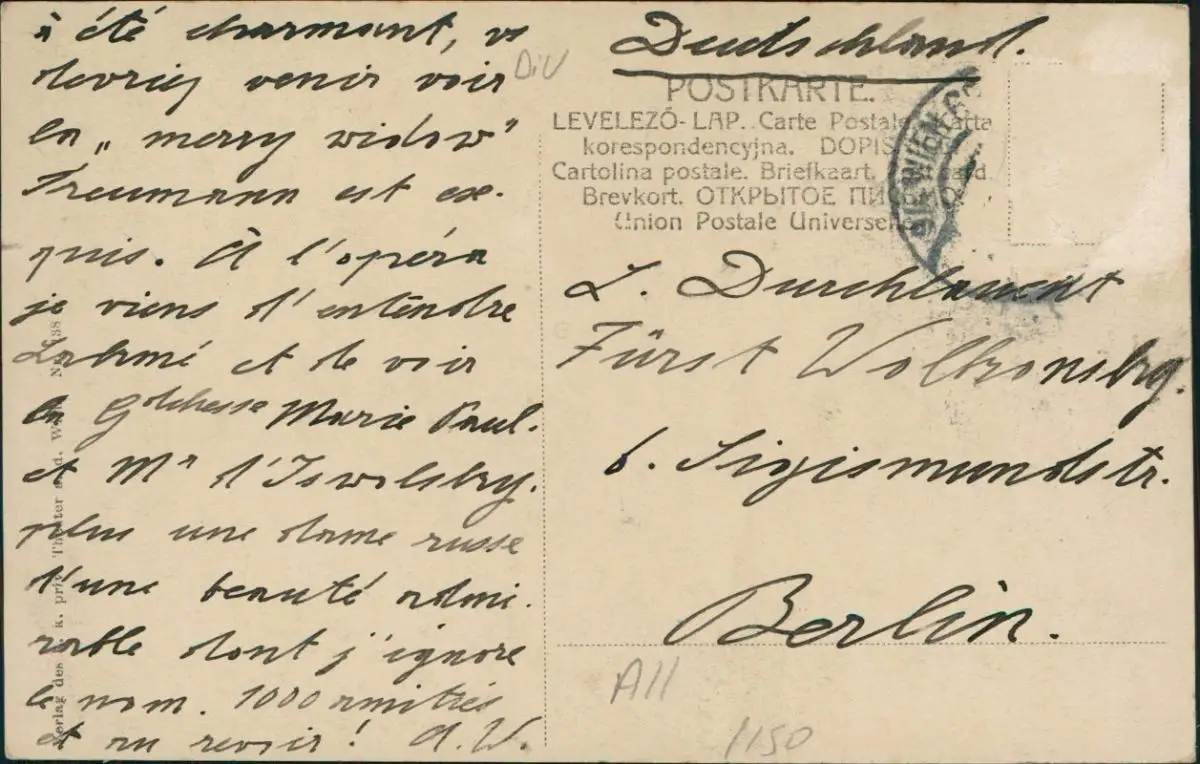 à été charmant, vs
devriez venir voir
la „merry widow"
Treumann est ex-
quis. À l'opéra
je viens d'entendre
Lakmé et de voir
la Gdchesse Marie Paul.
et Me d'Iswolsky.
plus une dame russe
d'une beauté admi-
rable dont j'ignore
le nom. 1000 amitiés
et au revoir! A.W.
DiV
Deutschland.
POSTKARTE.
LEVELEZŐ-LAP. Carte Postale.
korespondencyjna.
Cartolina postale. Briefkaart.
Brevkort. ОТКРЫТОЕ
Union Postale Universelle
WIEN
S. Durchlaucht
Fürst Wolkonsky.
6. Sigismundstr.
Berlin.
A11
1150
Verlag des k. k. priv. Theater